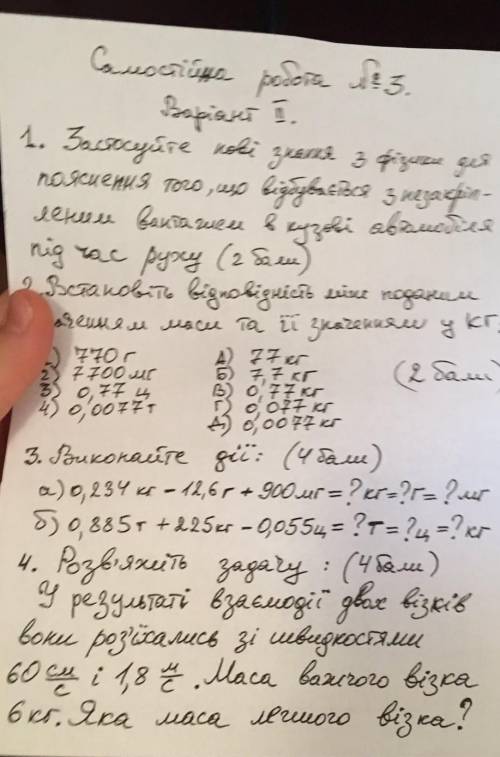 Самостійна робота №3.
Варіант II.
1. Застосуйте нові знання з фізики для
пояснення того, що відбувається з незакріп-
леним вантажем в кузові автомобіля
під час руху (2 бали)
2. Встановіть відповідність між поданим
значенням маси та її значенням у кг.
1) 770 г А) 77 кг
2) 7700 мг Б) 7,7 кг (2 бали)
3) 0,77 ц В) 0,77 кг
4) 0,0077 т Г) 0,077 кг
Д) 0,0077 кг
3. Виконайте дії: (4 бали)
а) 0,234 кг - 12,6 г + 900 мг = ? кг = ? г = ? мг
б) 0,885 т + 225 кг - 0,055 ц = ? т = ? ц = ? кг
4. Розв'яжіть задачу: (4 бали)
У результаті взаємодії двох візків
вони роз'їхались зі швидкостями
60 см/с і 1,8 м/с. Маса важчого візка
6 кг. Яка маса легшого візка?